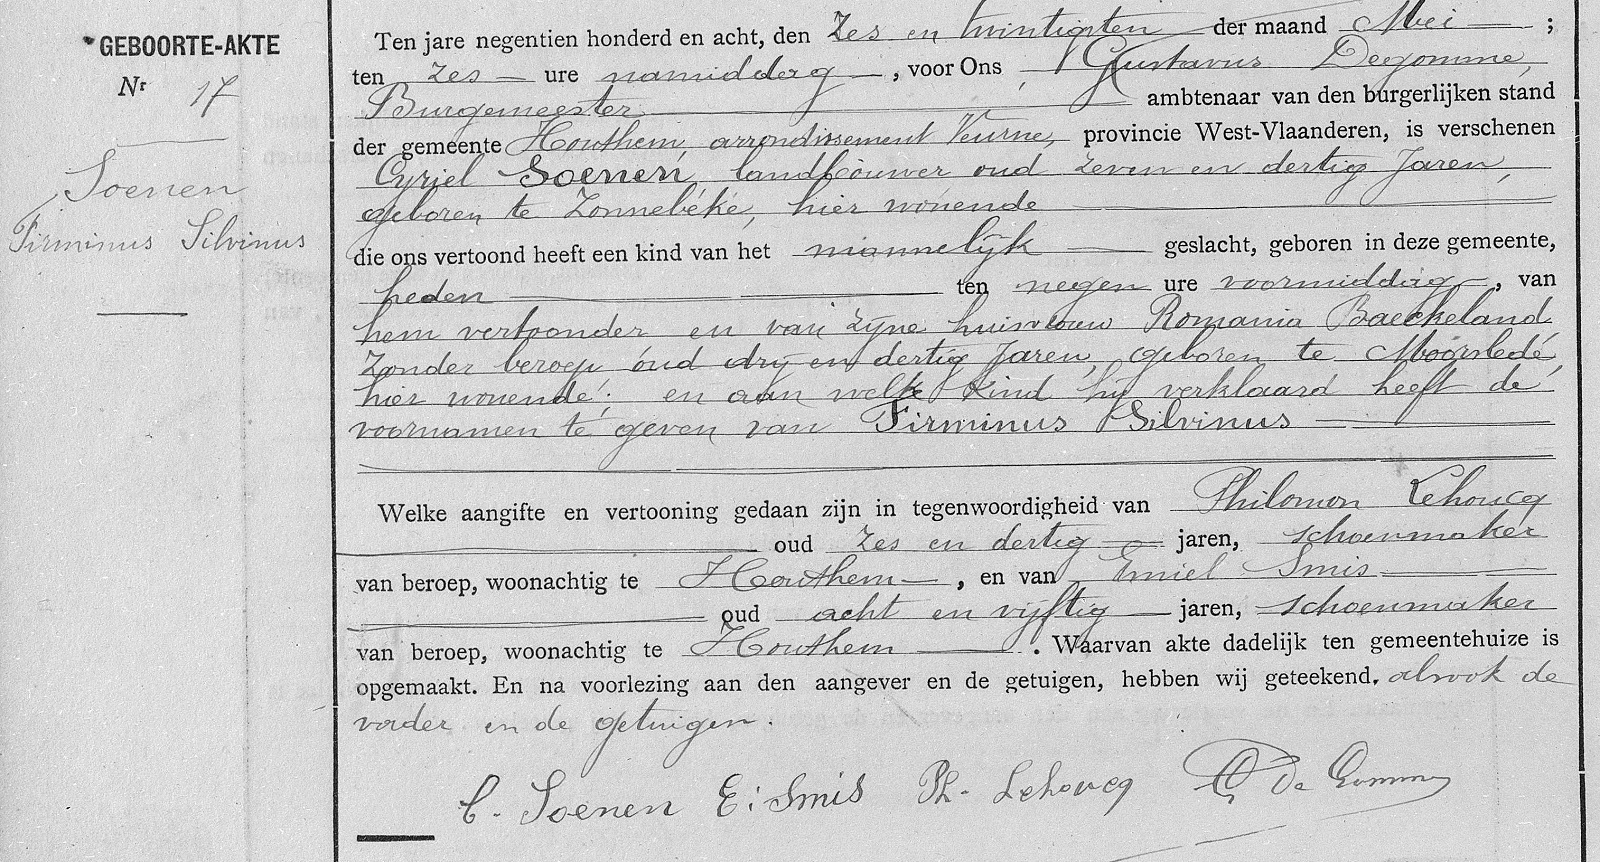 GEBOORTE-AKTE
Nr 17
Soenen
Firminus Silvinus
Ten jare negentien honderd en acht, den Zes en twintigsten der maand Mei ;
ten zes ure namiddag , voor Ons Gustavus Degomme,
Burgemeester ambtenaar van den burgerlijken stand
der gemeente Houthem, arrondissement Veurne, provincie West-Vlaanderen, is verschenen
Cyriel Soenen, landbouwer oud zeven en dertig Jaren,
geboren te Zonnebeke, hier wonende
die ons vertoond heeft een kind van het mannelijk geslacht, geboren in deze gemeente,
heden ten negen ure voormiddag , van
hem vertooner en van zijne huisvrouw Romania Baeckeland
Zonder beroep oud dry en dertig Jaren, geboren te Moorslede,
hier wonende; en aan welk kind hij verklaard heeft de
voornamen te geven van Firminus Silvinus
Welke aangifte en vertooning gedaan zijn in tegenwoordigheid van Philomon Lehoucq
oud zes en dertig jaren, schoenmaker
van beroep, woonachtig te Houthem , en van Emiel Smis
oud acht en vijftig jaren, schoenmaker
van beroep, woonachtig te Houthem . Waarvan akte dadelijk ten gemeentehuize is
opgemaakt. En na voorlezing aan den aangever en de getuigen, hebben wij geteekend. alsook de
vader en de getuigen.
C. Soenen E. Smis Ph. Lehoucq G De Gomme